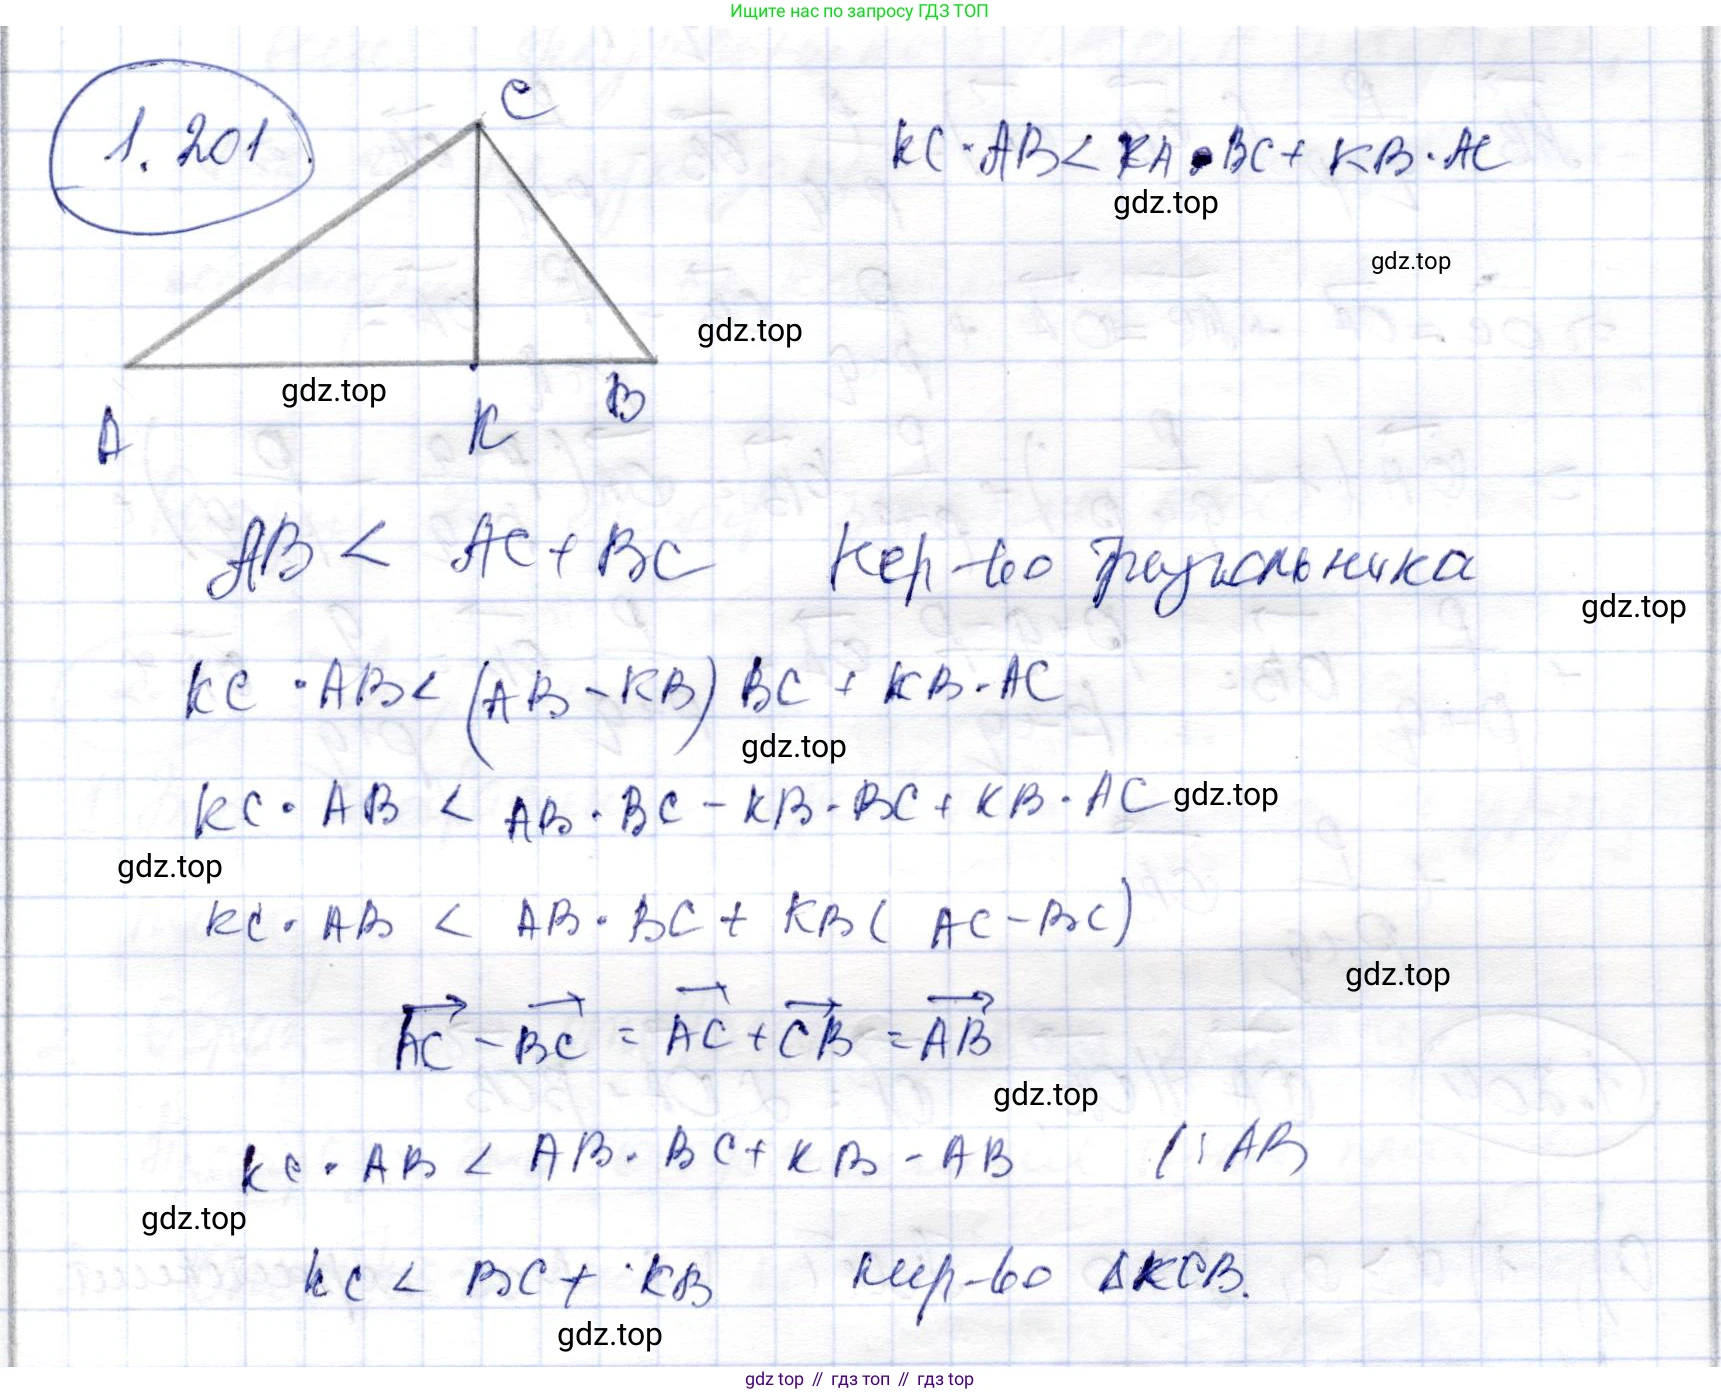 Ищите нас по запросу ГДЗ ТОП
1.201
C
KC · AB < KA · BC + KB · AC
gdz.top
gdz.top
gdz.top
gdz.top
A
K
B
AB < AC + BC Нер-во треугольника
gdz.top
KC · AB < (AB - KB) BC + KB · AC
gdz.top
KC · AB < AB · BC - KB · BC + KB · AC
gdz.top
gdz.top
KC · AB < AB · BC + KB ( AC - BC)
gdz.top
AC - BC = AC + CB = AB
gdz.top
KC · AB < AB · BC + KB - AB (: AB
gdz.top
KC < BC + KB Нер-во ΔKCB.
gdz.top
gdz top // гдз топ // гдз top